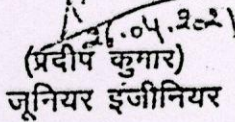 26.04.202
(प्रदीप कुमार)
जूनियर इंजीनियर